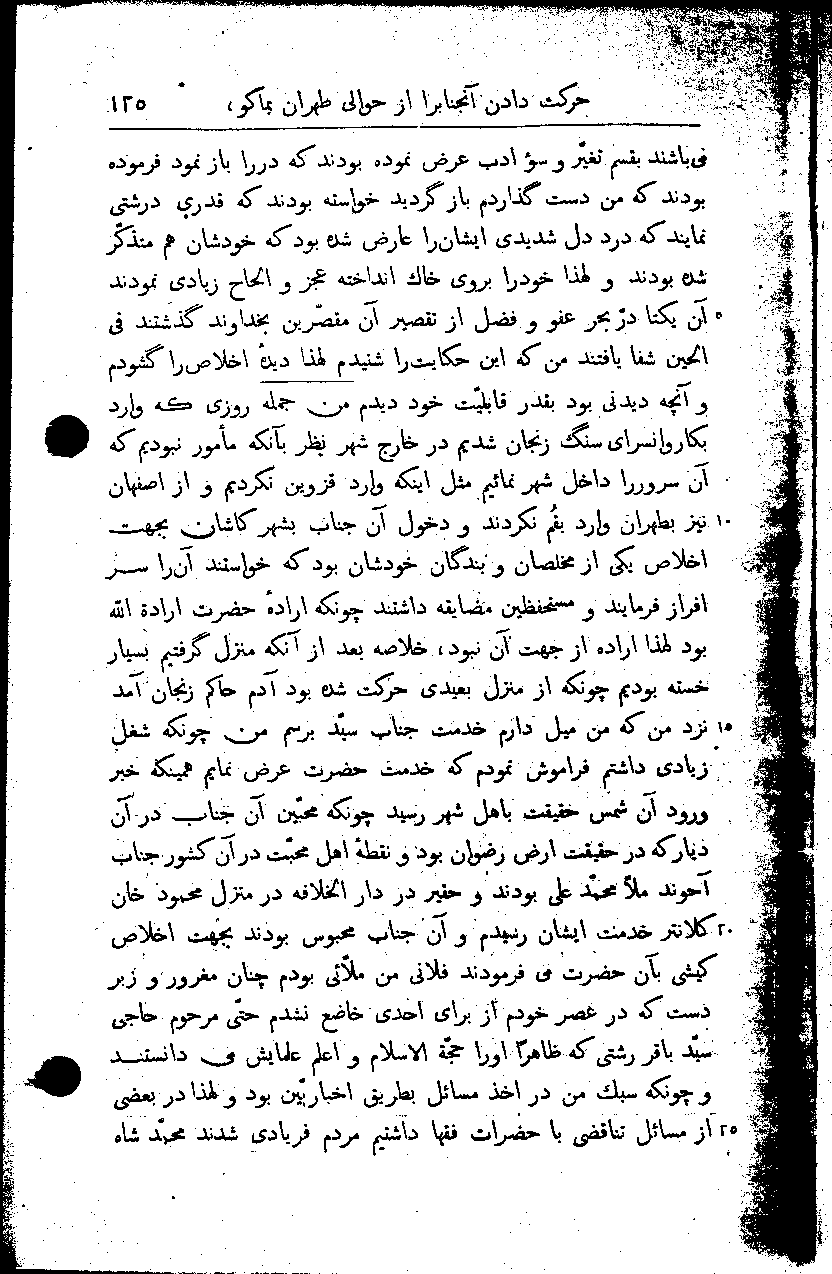 حرکت دادن آنجنابرا از حوالی طهران بماکو، ۱۲۵
می‌باشند بقسم تغیّر و سوٴ ادب عرض نموده بودند که دررا باز نمود فرموده
بودند که من دست گذاردم باز گردید خواسته بودند که قدری درشتی
نمایند که درد دل شدیدی ایشان‌را عارض شده بود که خودشان هم متذکّر
شده بودند و لهذا خودرا بروی خاك انداخته عجز و الحاح زیادی نمودند
۵ آن یکتا درّ بحر عفو و فضل از تقصیر آن مقصّرین بخداوند گذشتند فی
الحین شفا یافتند من که این حکایت‌را شنیدم لهذا دیدهٔ اخلاص‌را گشودم
و آنچه دیدنی بود بقدر قابلیّت خود دیدم من جمله روزی که وارد
بکاروانسرای سنگ زنجان شدیم در خارج شهر نظر بآنکه مأمور نبودیم که
آن سروررا داخل شهر نمائیم مثل اینکه وارد قزوین نکردیم و از اصفهان
۱۰ نیز بطهران وارد بقُم نکردند و دخول آن جناب بشهر کاشان بجهت
اخلاص یکی از مخلصان و بندگان خودشان بود که خواستند آن‌را سر
افراز فرمایند و مستحفظین مضایقه داشتند چونکه ارادهٔ حضرت ارادة اللّه
بود لهذا اراده از جهت آن نبود، خلاصه بعد از آنکه منزل گرفتیم بسیار
خسته بودیم چونکه از منزل بعیدی حرکت شده بود آدم حاکم زنجان آمد
۱۵ نزد من که من میل دارم خدمت جناب سیّد برسم من چونکه شغل
زیادی داشتم فراموش نمودم که خدمت حضرت عرض نمایم همینکه خبر
ورود آن شمس حقیقت باهل شهر رسید چونکه محبّین آن جناب در آن
دیار که در حقیقت ارض رضوان بود و نقطهٔ اهل محبّت در آن کشور جناب
آخوند ملاّ محمّد علی بودند و حقیر در دار الخلافه در منزل محمود خان
۲۰ کلانتر خدمت ایشان رسیدم و آن جناب محبوس بودند بجهت اخلاص
کیشی بآن حضرت می فرمودند فلانی من ملاّئی بودم چنان مغرور و زبر
دست که در عصر خودم از برای احدی خاضع نشدم حتّی مرحوم حاجی
سیّد باقر رشتی که ظاهراً اورا حجّة الاسلام و اعلم علمایش می دانستند
و چونکه سبك من در اخذ مسائل بطریق اخباریّین بود و لهذا در بعضی
۲۵ از مسائل تناقضی با حضرات فقها داشتیم مردم فریادی شدند محمّد شاه